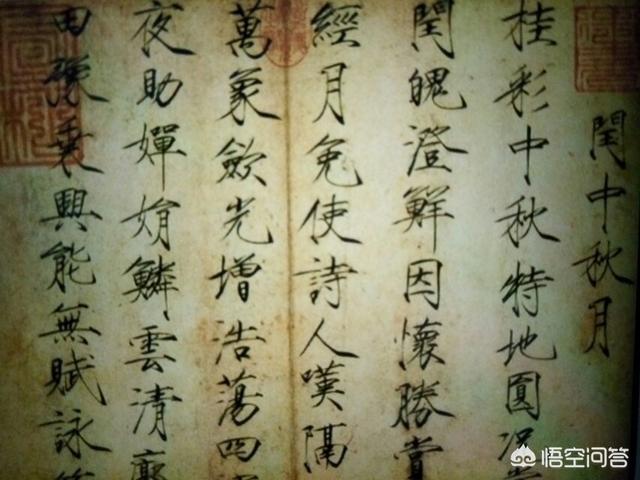 閏中秋月
桂彩中秋特地圓況
閏魄澄鮮因懷勝賞
經月免使詩人嘆隔
萬象歛光增浩蕩四
夜助嬋娟鱗雲清廓
田豫乘興能無賦詠
悟空问答